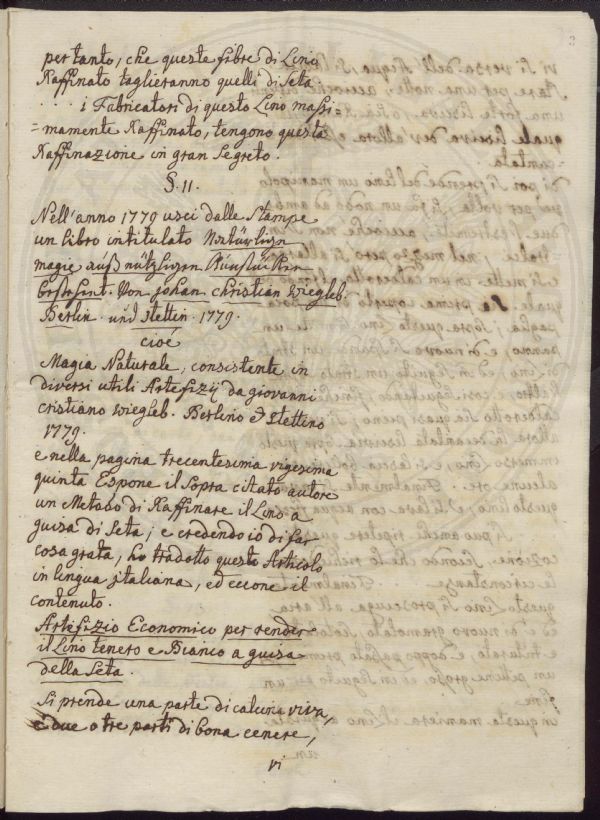 per tanto, che queste fibre di Lino
Raffinato taglieranno quelli di Seta.
. . . . i Fabricatori di questo Lino massi=
=mamente Raffinato, tengono questa
Raffinazione in gran Segreto.
§. 11.
Nell'anno 1779 usci dalle Stampe
un libro intitulato Natürlige
magie auß nützligen Künstücken
bestehent. Von Johan Christian Wiegleb.
Berlin. und Stettin. 1779.
cioé
Magia Naturale, consistente in
diversi utili Artefizij da giovanni
cristiano Wiegleb. Berlino & Stettino
1779.
e nella pagina trecentesima vigesima
quinta Espone il Sopra citato autore
un Metodo di Raffinare il Lino a
guisa di Seta; e credendo io di far
cosa grata, ho tradotto questo Articolo
in lingua jtaliana, ed eccone il
contenuto.
Artefizio Economico per render
il Lino tenero e Bianco a guisa
della Seta.
Si prende una parte di calcina viva,
e due o tre parti di bona cenere,
vi